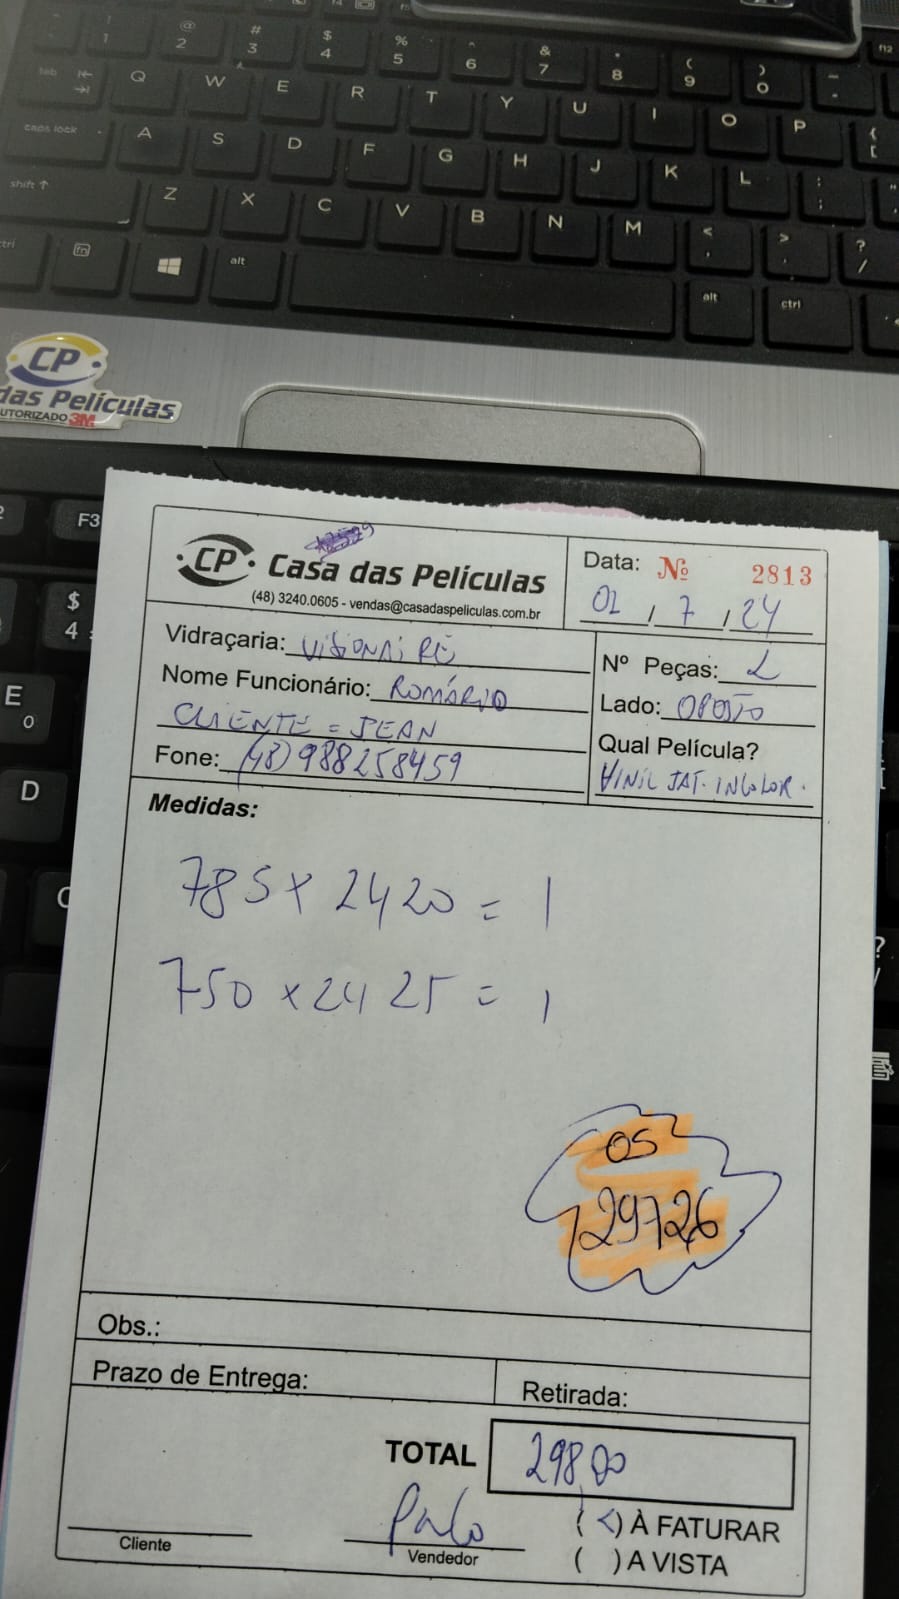 ! 1 @ 2 # 3 $ 4 % 5 ^ 6 & 7 * 8 ( 9 ) 0 - f12
tab Q W E R T Y U I O P { [
caps lock A S D F G H J K L : ; "
shift Z X C V B N M < , > . ? /
ctrl fn alt alt ctrl
CP
das Películas
AUTORIZADO 3M
F3
$ 4
E
D
CP Casa das Películas
(48) 3240.0605 - vendas@casadaspeliculas.com.br
Data: Nº 2813
02 / 7 / 24
Vidraçaria: VISIONAIRE
Nº Peças: 2
Nome Funcionário: ROMÁRIO
Lado: OPOSTO
CLIENTE = JEAN
Qual Película?
Fone: (48) 988258459
VINIL JAT. INCOLOR.
Medidas:
785 x 2420 = 1
750 x 2425 = 1
OS
29726
Obs.:
Prazo de Entrega:
Retirada:
TOTAL 298,00
( ) À FATURAR
Cliente
Vendedor
( ) A VISTA